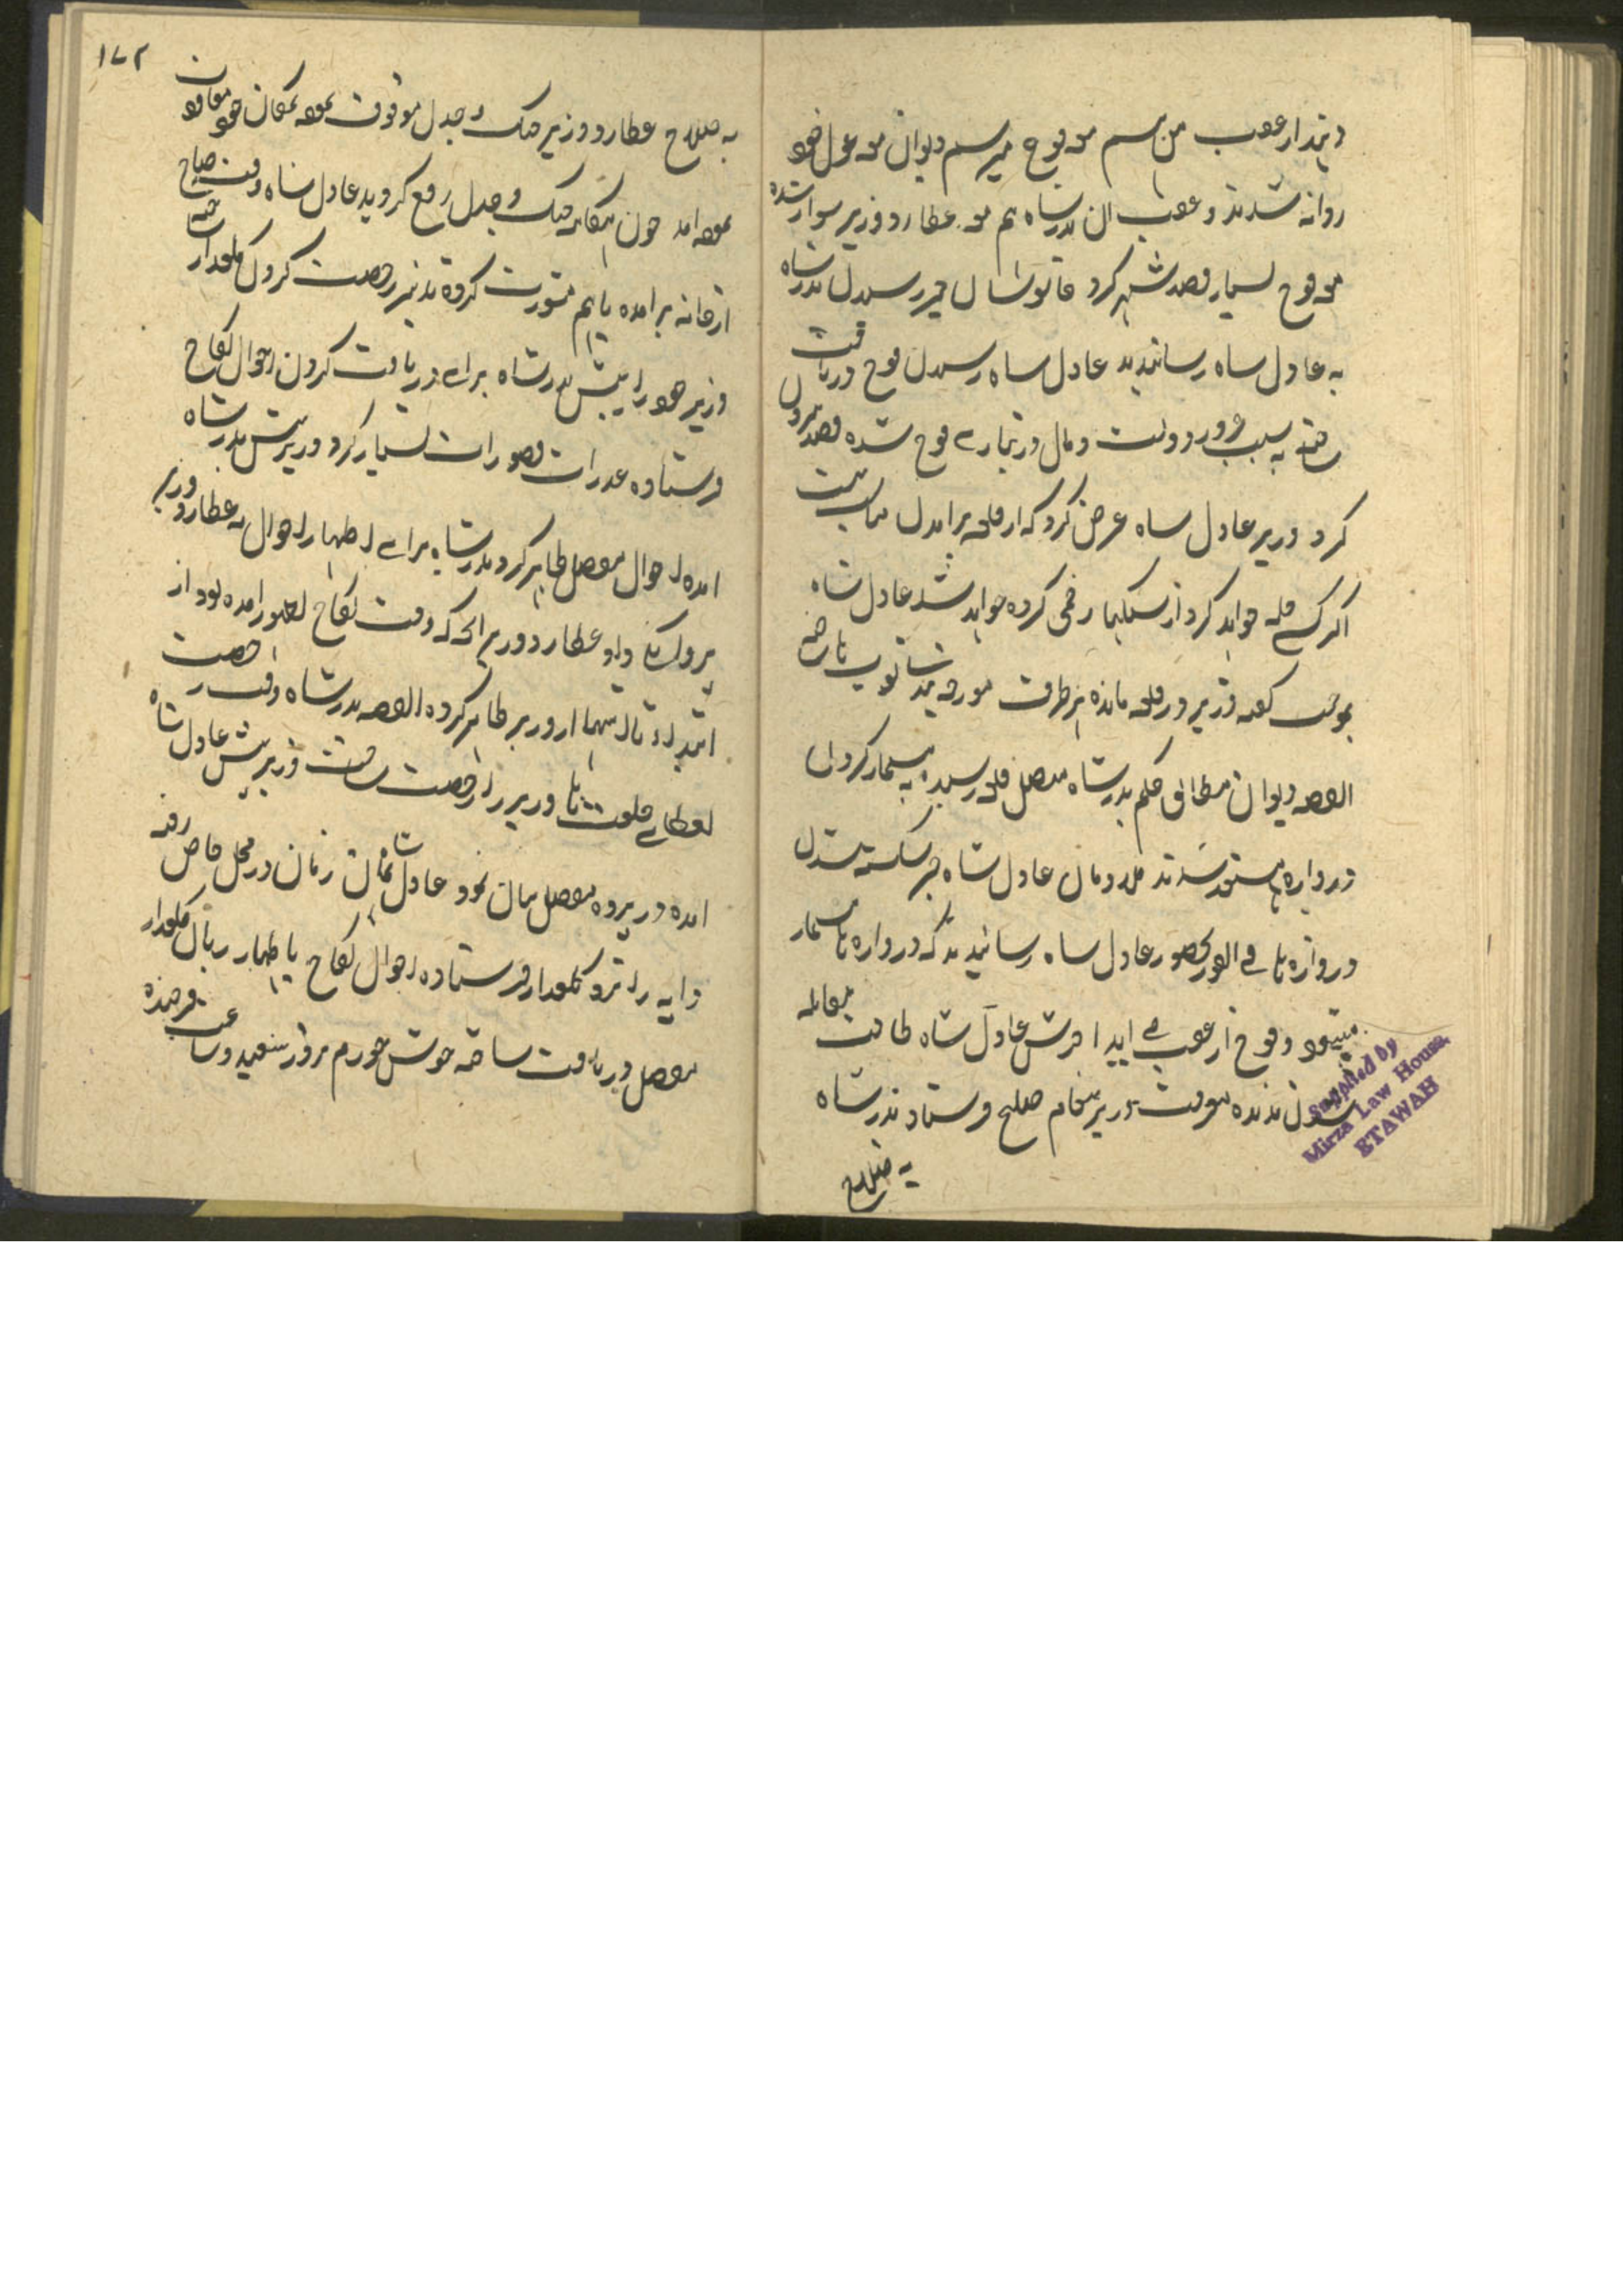 و تیدار عقب من هم مع فوج میرسم دیوان مع غول خود
روانه شدند و عقب ان بدرشاه هم مع عطارد وزیر سوار شده
مع فوج بسیار قصد شهر کرد جاسوسان خبر رسیدن بدرشاه
به عادل شاه رسانیدند عادل شاه رسیدن فوج دریافت
ساخته به سبب غرور دولت و مال و تیاری فوج شده قصد بیرون
کرد وزیر عادل شاه عرض کرد که از قلعه برامدن مناسب نیست
اگر کسی حمله خواهد کرد از سنگها زخمی کرده خواهد شد عادل شاه
بموجب گفته وزیر در قلعه مانده هر طرف مورچه بندی توپ ها ساخته
القصه دیوان مطابق حکم بدرشاه متصل قلعه رسیده به مسمار کردن
دروازه ها مستعد شدند ملازمان عادل شاه خبر شکسته شدن
دروازه ها فی الفور بحضور عادل شاه رسانیدند که دروازه ها مسمار
میشود و فوج از عقب می اید اخرش عادل شاه طاقت مقابله
شدن ندیده معرفت وزیر پیغام صلح فرستاد بدرشاه
به صلاح
۱۷۲
به صلاح عطارد وزیر جنگ و جدل موقوف نموده بمکان خود معاودت
نموده امد چون هنگامه جنگ و جدل رفع گردید عادل شاه وقت صباح
از خانه برامده باهم مشورت کرده تدبیر رخصت کردن گلعذار ساخته
وزیر خود را پیش بدرشاه برای دریافت کردن احوال نکاح
فرستاده عذرات قصورات بسیار کرد وزیر پیش بدرشاه
امده احوال مفصل ظاهر کرد بدرشاه برای اظهار احوال به عطارد وزیر
پروانگی داد عطارد وزیر انچه که وقت نکاح بظهور امده بود از
ابتدا تا انتها از وزیر ظاهر کرده القصه بدرشاه وقت رخصت
بعطای خلعت ها وزیر را رخصت ساخت وزیر پیش عادل شاه
امده در پرده مفصل بیان نمود عادل شاه همان زمان در محل خاص رفته
دایه را نزد گلعذار فرستاده احوال نکاح باظهار زبان گلعذار
مفصل دریافت ساخته خوش خورم بروز سعید و ساعت فرخنده
Supplied by
Mirza Law House,
ETAWAH